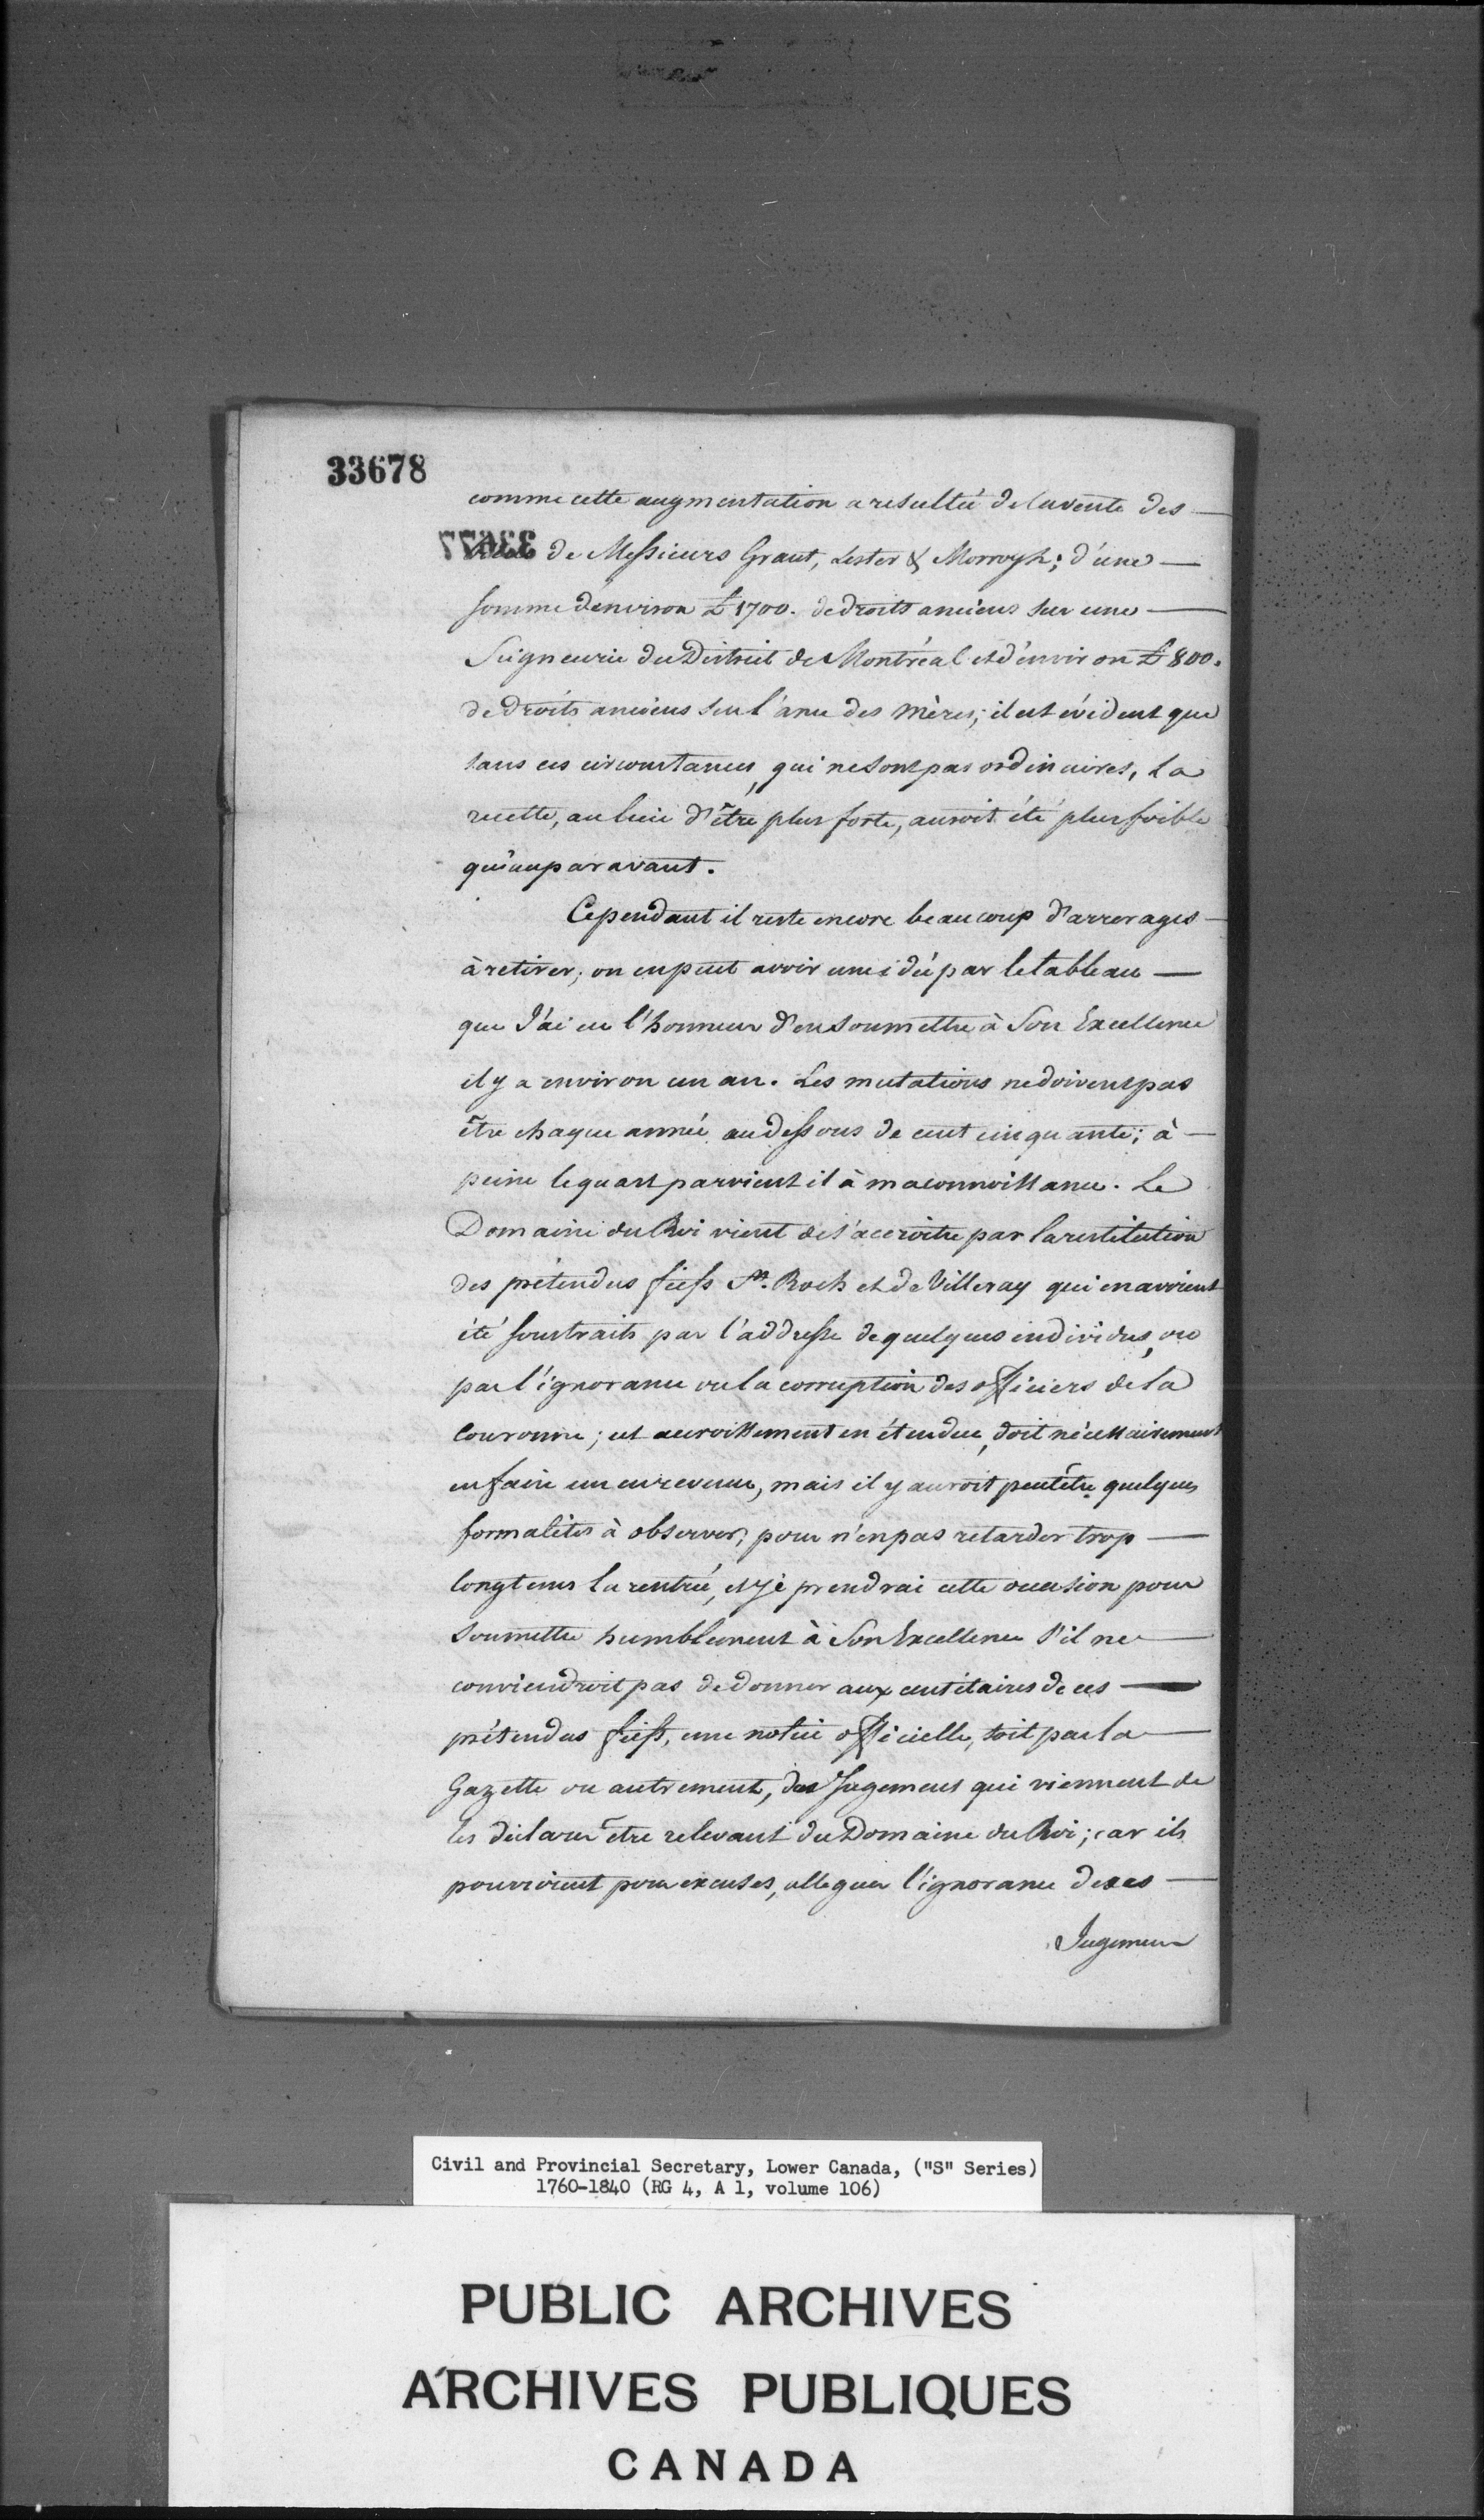 33678
comme cette augmentation a resultée de la vente des
33677 de Messieurs Grant, Lester & Morrogh; d'une
somme d'environ £1700. de droits anciens sur une
Seigneurie du District de Montréal et d'environ £800.
de droits anciens sur l'anse des mères; il est évident que
sans ces circonstances, qui ne sont pas ordinaires, la
recette, au lieu d'être plus forte, auroit été plus foible
qu'auparavant.
Cependant il reste encore beaucoup d'arrerages
à retirer; on en peut avoir une idée par le tableau
que J'ai eu l'honneur d'en soumettre à Son Excellence
il y a environ un an. Les mutations ne doivent pas
être chaque année au dessous de cent cinquante; à
peine le quart parvient il à ma connoissance. Le
Domaine du Roi vient de s'accroitre par la restitution
des prétendus fiefs St. Roch et de Villeray qui en avoient
été soustraits par l'addresse de quelques individus, ou
par l'ignorance ou la corruption des officiers de la
Couronne; cet accroissement en étendue, doit nécessairement
en faire un en revenu, mais il y auroit peutêtre quelques
formalités à observer, pour n'en pas retarder trop
longtems la rentrée, et je prendrai cette occasion pour
soumettre humblement à Son Excellence s'il ne
conviendroit pas de donner aux censitaires de ces
prétendus fiefs, une notice officielle, soit par la
Gazette ou autrement, des Jugemens qui viennent de
les déclarer être relevant du Domaine du Roi; car ils
pouroient pour excuses, alleguer l'ignorance de ces
Jugemens
Civil and Provincial Secretary, Lower Canada, ("S" Series)
1760-1840 (RG 4, A 1, volume 106)
PUBLIC ARCHIVES
ARCHIVES PUBLIQUES
CANADA